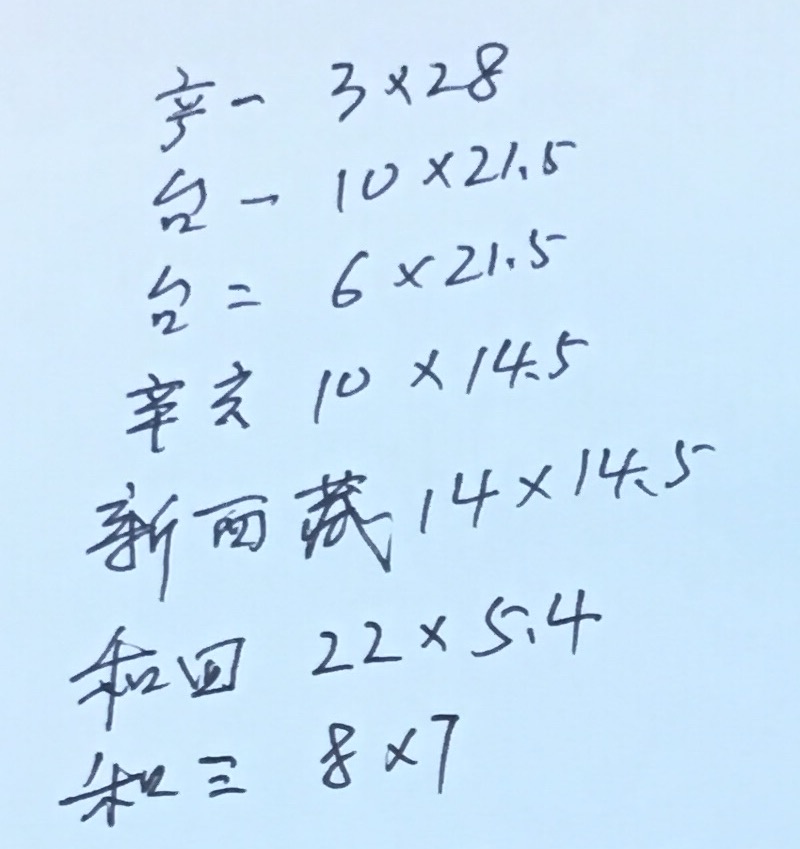 一 3×28
台一 10×21.5
台二 6×21.5
辛亥 10×14.5
新西藏 14×14.5
和四 22×5.4
和三 8×7